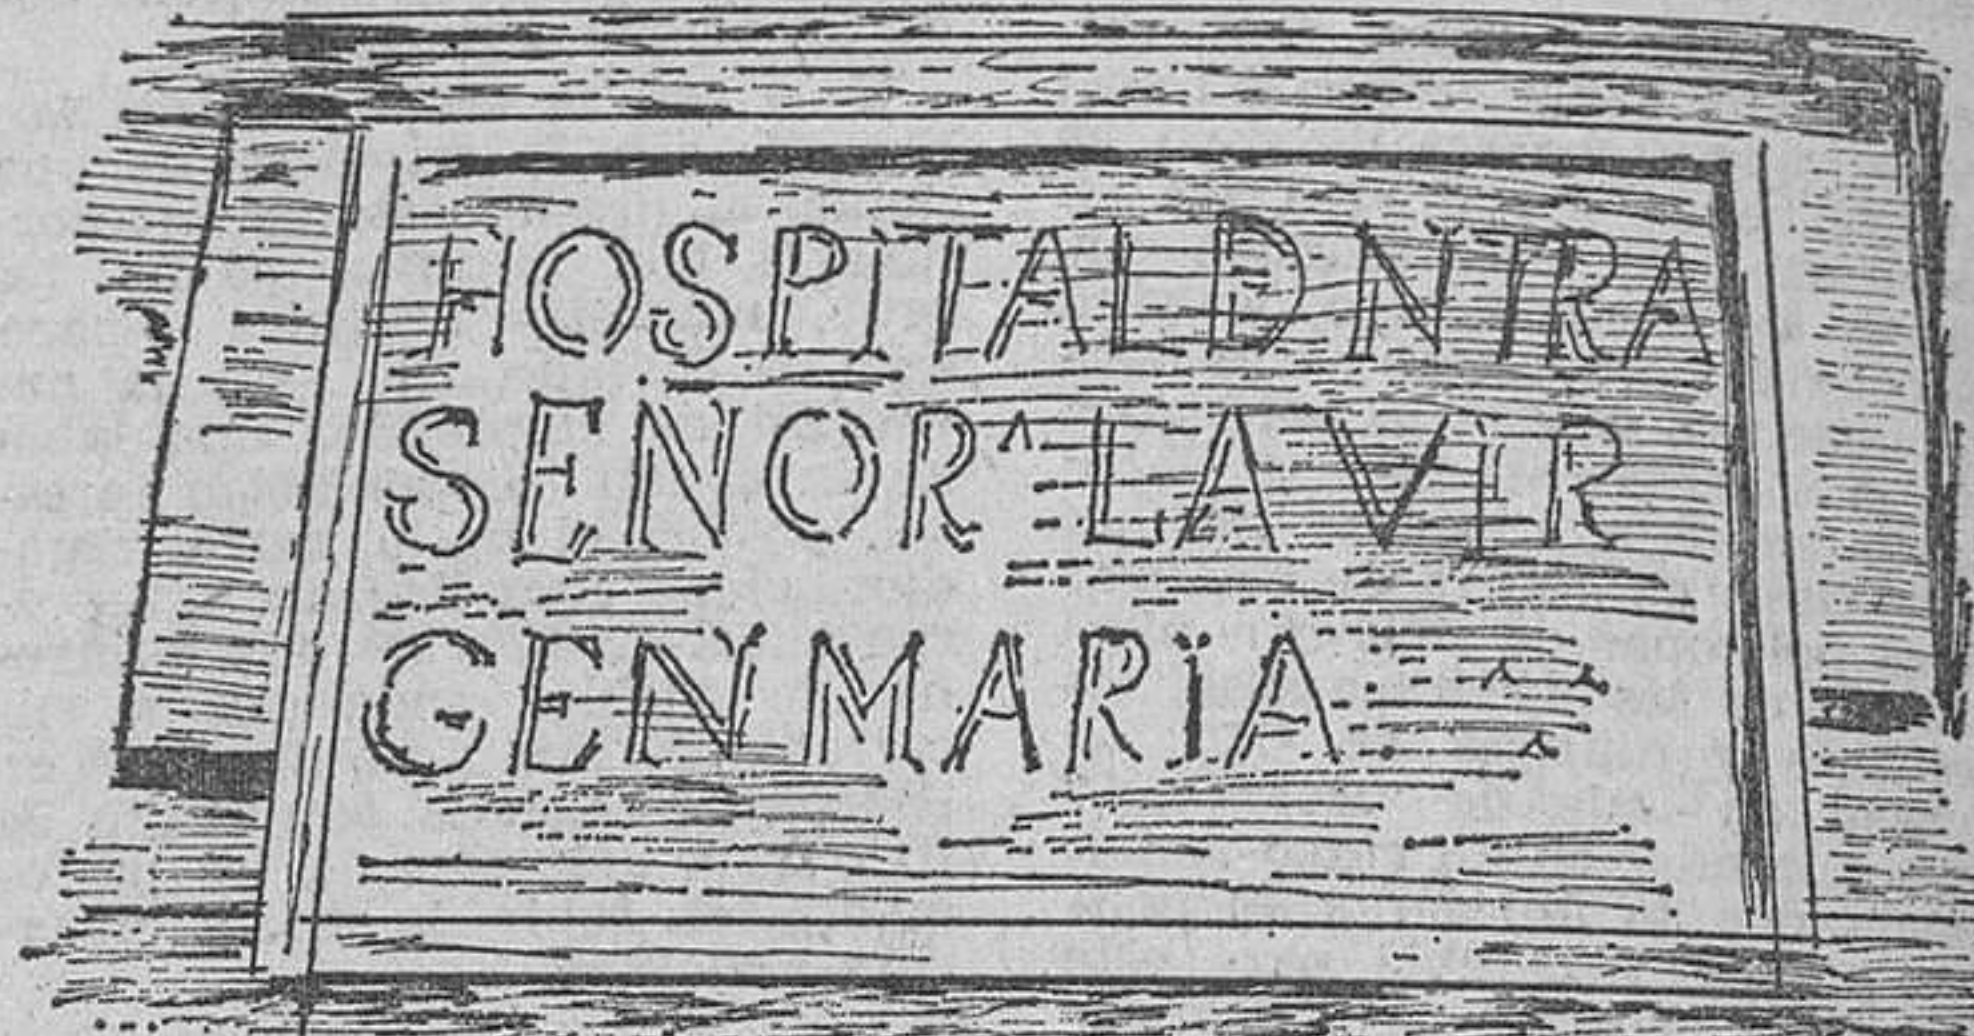 HOSPITAL D NTRA
SEÑORA LA VIR
GEN MARÏA: